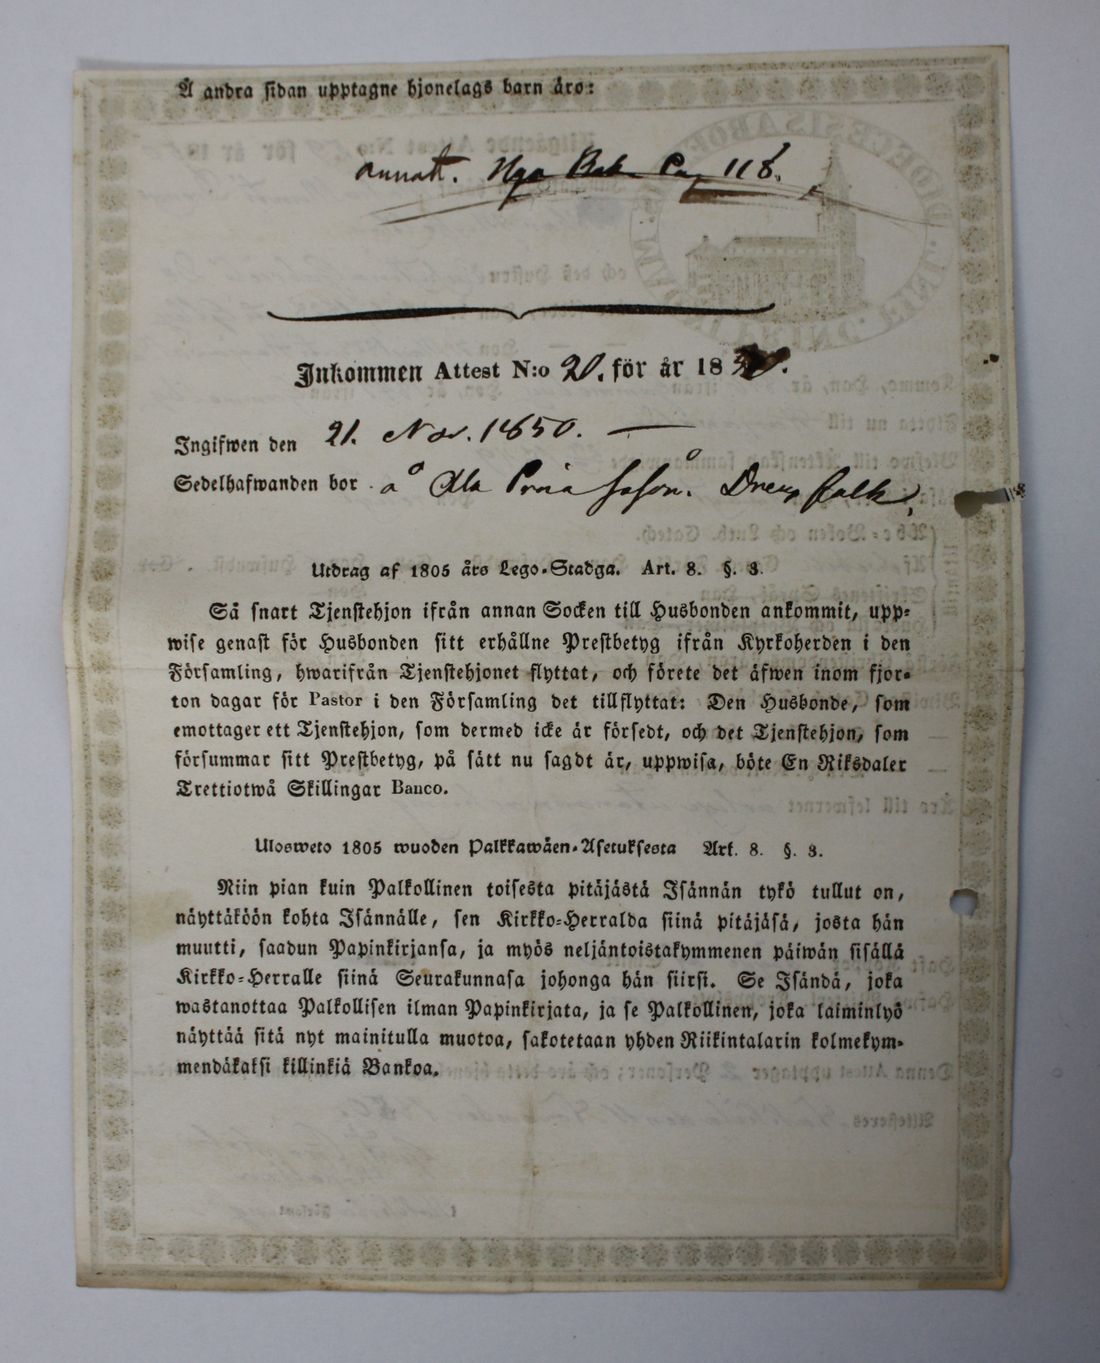 Å andra sidan upptagne hjonelags barn äro:
annot. Nya Bok. Pag 118.
Inkommen Attest N:o 20. för år 18
Ingifwen den 21. Nov. 1850. —
Sedelhafwanden bor å
Utdrag af 1805 års Lego-Stadga. Art. 8. §. 3.
Så snart Tjenstehjon ifrån annan Socken till Husbonden ankommit, upp-
wise genast för Husbonden sitt erhållne Prestbetyg ifrån Kyrkoherden i den
Församling, hwarifrån Tjenstehjonet flyttat, och förete det äfwen inom fjor-
ton dagar för Pastor i den Församling det tillflyttat: Den Husbonde, som
emottager ett Tjenstehjon, som dermed icke är försedt, och det Tjenstehjon, som
försummar sitt Prestbetyg, på sätt nu sagdt är, uppwisa, böte En Riksdaler
Trettiotwå Skillingar Banco.
Ulosweto 1805 wuoden Palkkawäen-Asetuksesta Art. 8. §. 3.
Niin pian kuin Palkollinen toisesta pitäjästä Isännän tykö tullut on,
näyttäköön kohta Isännälle, sen Kirkko-Herralda siinä pitäjäsä, josta hän
muutti, saadun Papinkirjansa, ja myös neljäntoistakymmenen päiwän sisällä
Kirkko-Herralle siinä Seurakunnasa johonga hän siirsi. Se Isändä, joka
wastanottaa Palkollisen ilman Papinkirjata, ja se Palkollinen, joka laiminlyö
näyttää sitä nyt mainitulla muotoa, sakotetaan yhden Riikintalarin kolmekym-
mendäkaksi killinkiä Bankoa.